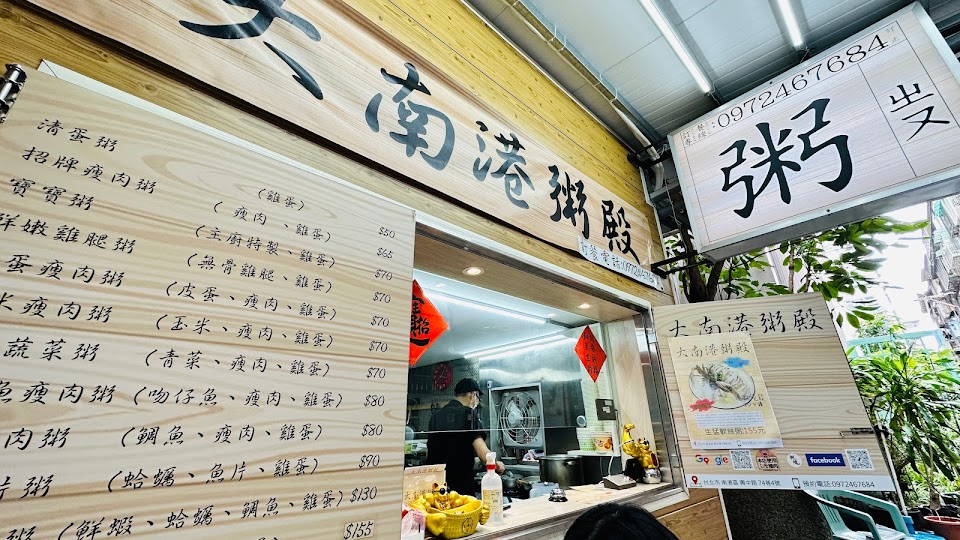 大南港粥殿
訂餐電話:0972467684
:0972467684
粥
出
清蛋粥 (雞蛋) $50
招牌瘦肉粥 (瘦肉、雞蛋) $65
寶寶粥 (主廚特製、雞蛋) $70
鮮嫩雞腿粥 (無骨雞腿、雞蛋) $70
蛋瘦肉粥 (皮蛋、瘦肉、雞蛋) $70
米瘦肉粥 (玉米、瘦肉、雞蛋) $70
蔬菜粥 (青菜、瘦肉、雞蛋) $70
魚瘦肉粥 (吻仔魚、瘦肉、雞蛋) $80
肉粥 (鯛魚、瘦肉、雞蛋) $80
片粥 (蛤蠣、魚片、雞蛋) $90
粥 (鮮蝦、蛤蠣、鯛魚、雞蛋) $130
$155
大南港粥殿
大南港粥殿
生猛軟絲粥155元
Google
facebook
台北市 南港區 興中路 74巷4號
預約電話 0972467684